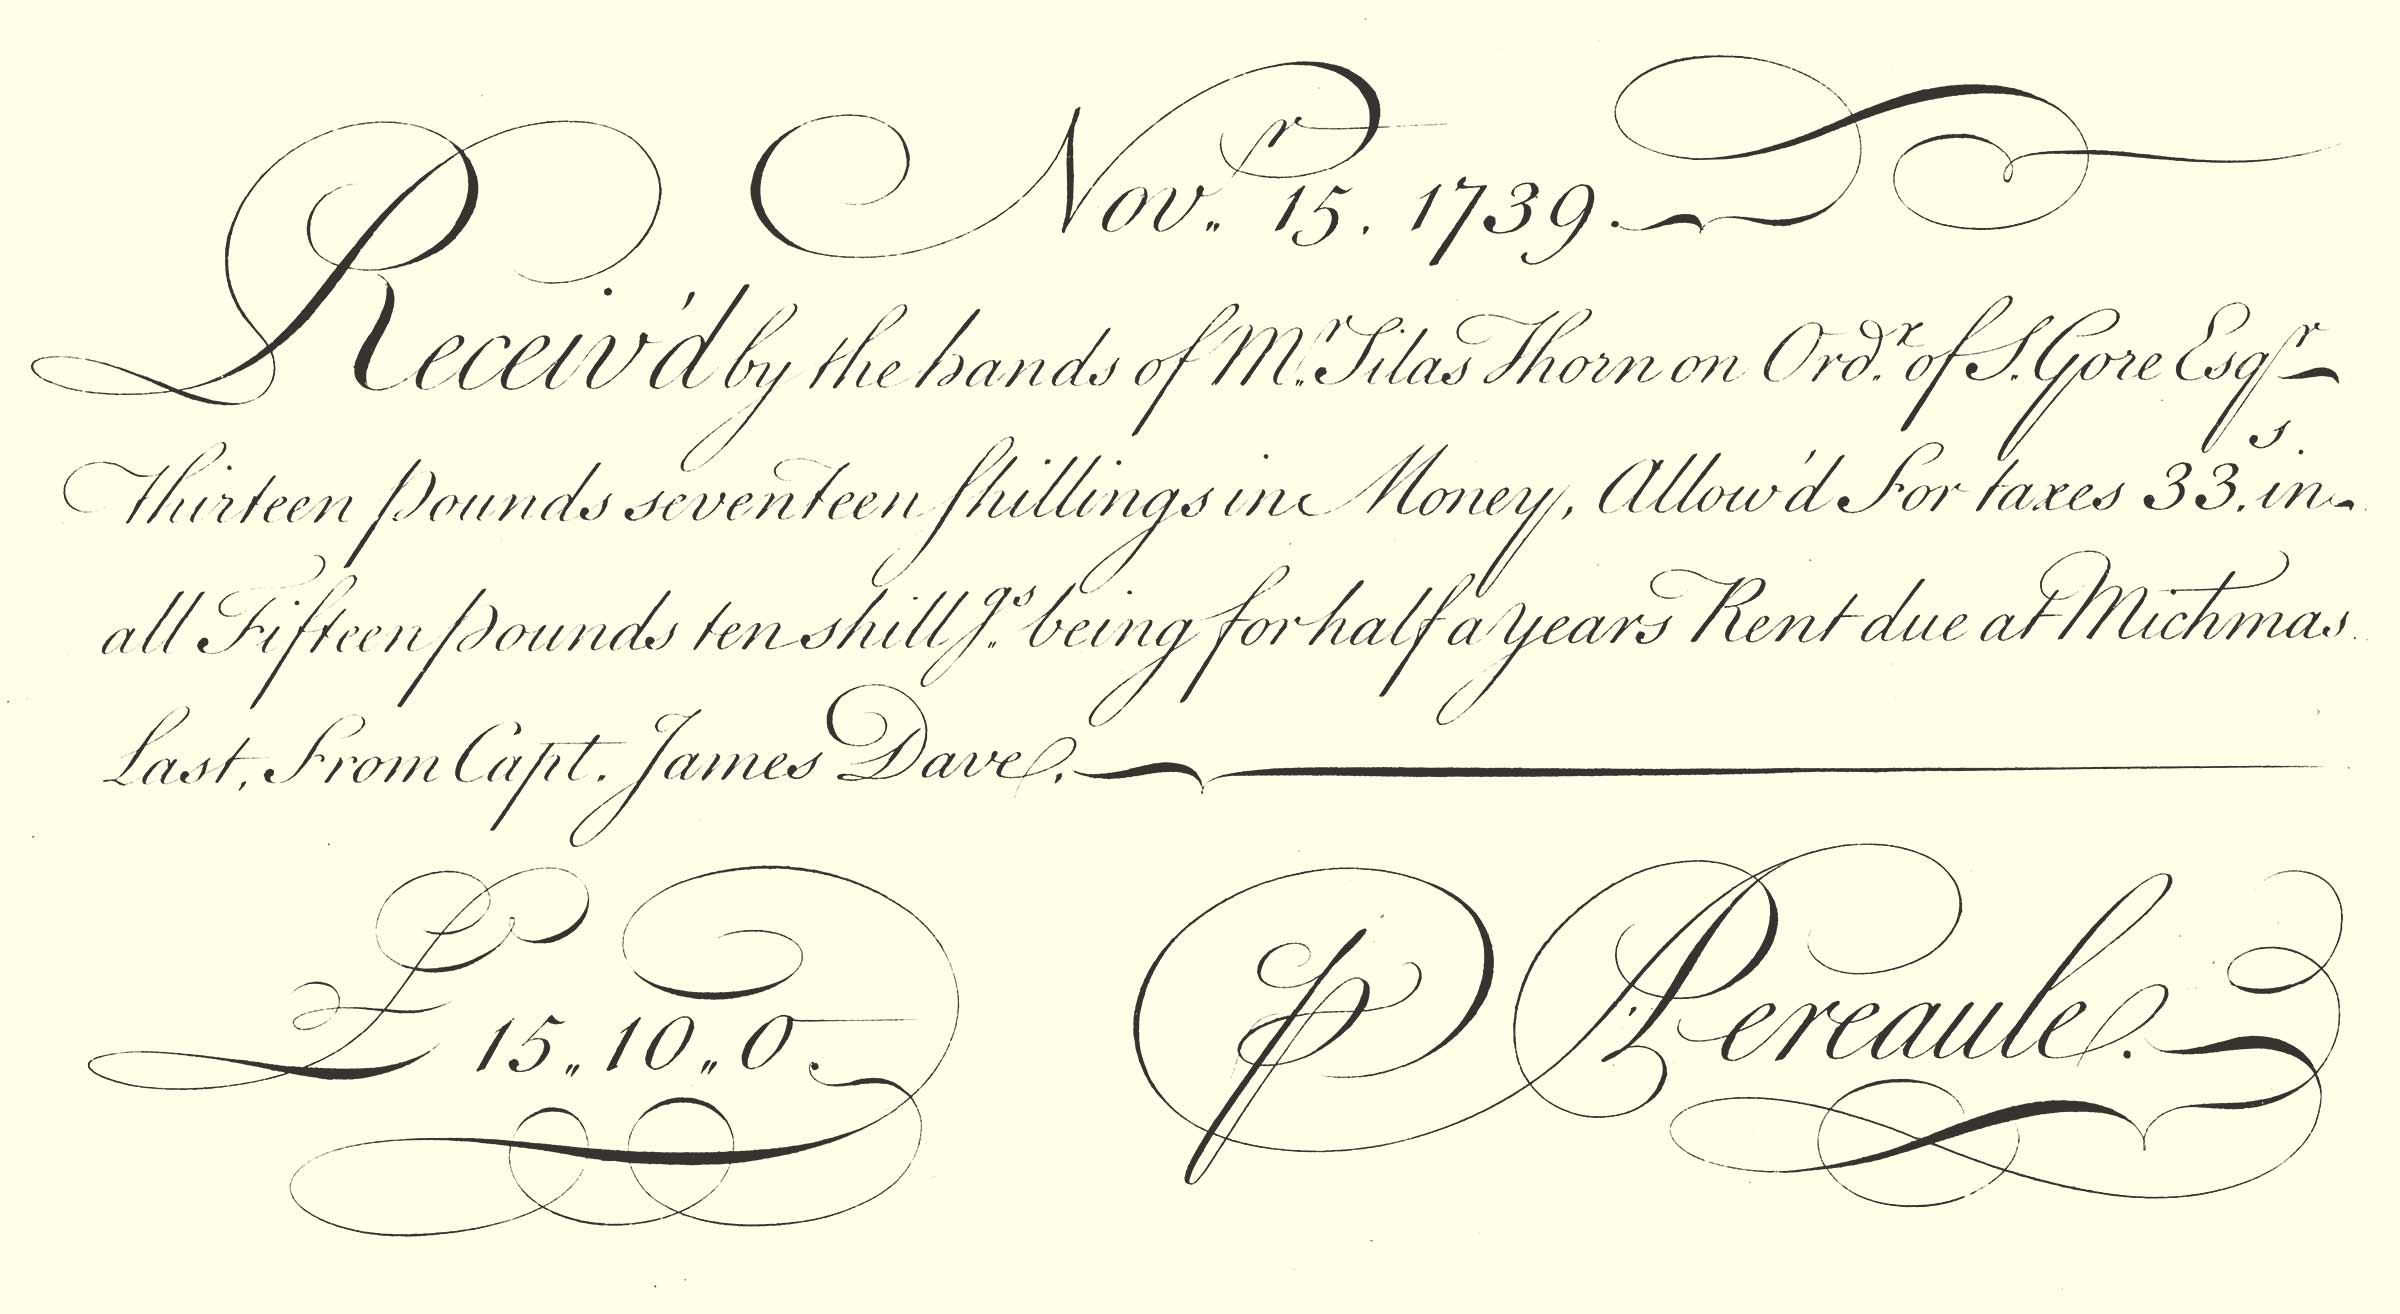 Nov.r 15. 1739.
Receiv'd by the hands of M.r Silas Thorn on Ord.r of S. Gore Esqr
Thirteen pounds seventeen shillings in Money, Allow'd For taxes 33.s in
all Fifteen pounds ten shill.gs being for half a years Rent due at Michmas
Last, From Capt. James Dave.
£ 15„10„0. P Pereaule.